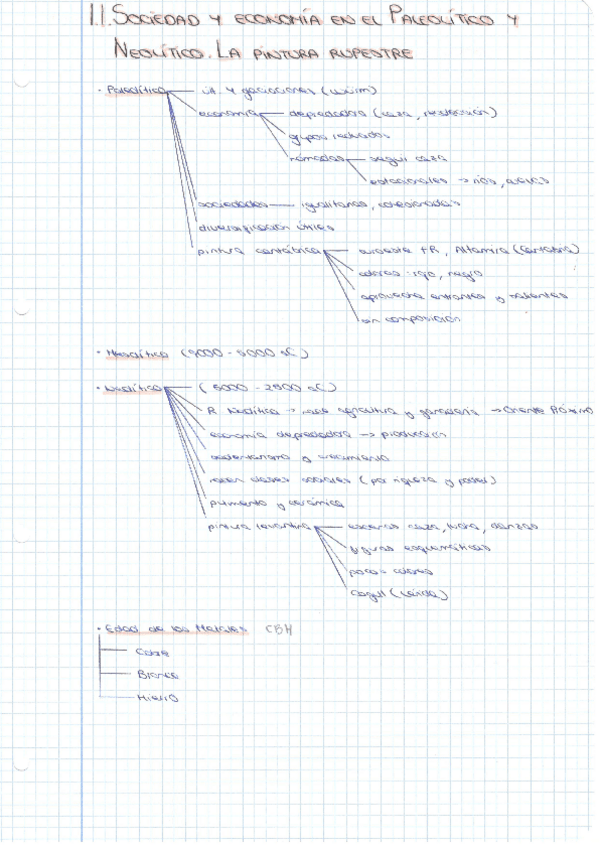 1.1. SOCIEDAD Y ECONOMÍA EN EL PALEOLÍTICO Y
NEOLÍTICO. LA PINTURA RUPESTRE
· Paleolítico — 4 glaciaciones (Würm)
economía — depredadora (caza, recolección)
grupos reducidos
nómadas — seguir caza
estacionales → ríos, cuevas
sociedades — igualitarias, cohesionadas
diversificación útiles
pintura cantábrica — Altamira (Cantabria)
colores: rojo, negro
aprovecha entrantes y salientes
sin composición
· Mesolítico (9000 - 5000 aC)
· Neolítico — (5000 - 2500 aC)
R. Neolítica → nace agricultura y ganadería → Oriente Próximo
economía depredadora → producción
sedentarismo y crecimiento
nacen clases sociales (por riqueza y poder)
pulimento y cerámica
pintura levantina — escenas caza, lucha, danzas
figuras esquemáticas
pocos colores
Cogull (Lérida)
· Edad de los Metales CBH
Cobre
Bronce
Hierro